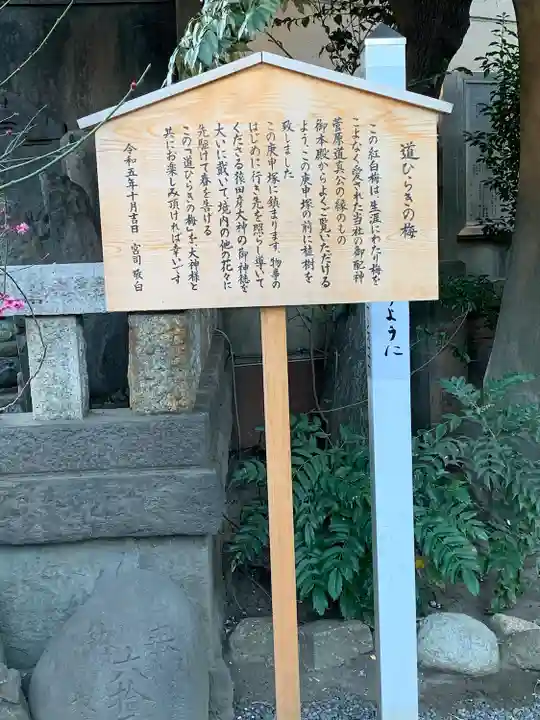 道ひらきの梅
この紅白梅は、生涯にわたり梅を
こよなく愛された当社の御配神
菅原道真公の縁のもの
御本殿からよくご覧いただける
よう、この庚申塚の前に植樹を
致しました
この庚申塚に鎮まります、物事の
はじめに行き先を照らし導いて
くださる猿田彦大神の御神徳を
大いに戴いて、境内の他の花々に
先駆けて春を告げる
この「道ひらきの梅」を、大神様と
共にお楽しみ頂ければ幸いです
令和五年十月吉日　宮司 敬白
ように
六拾